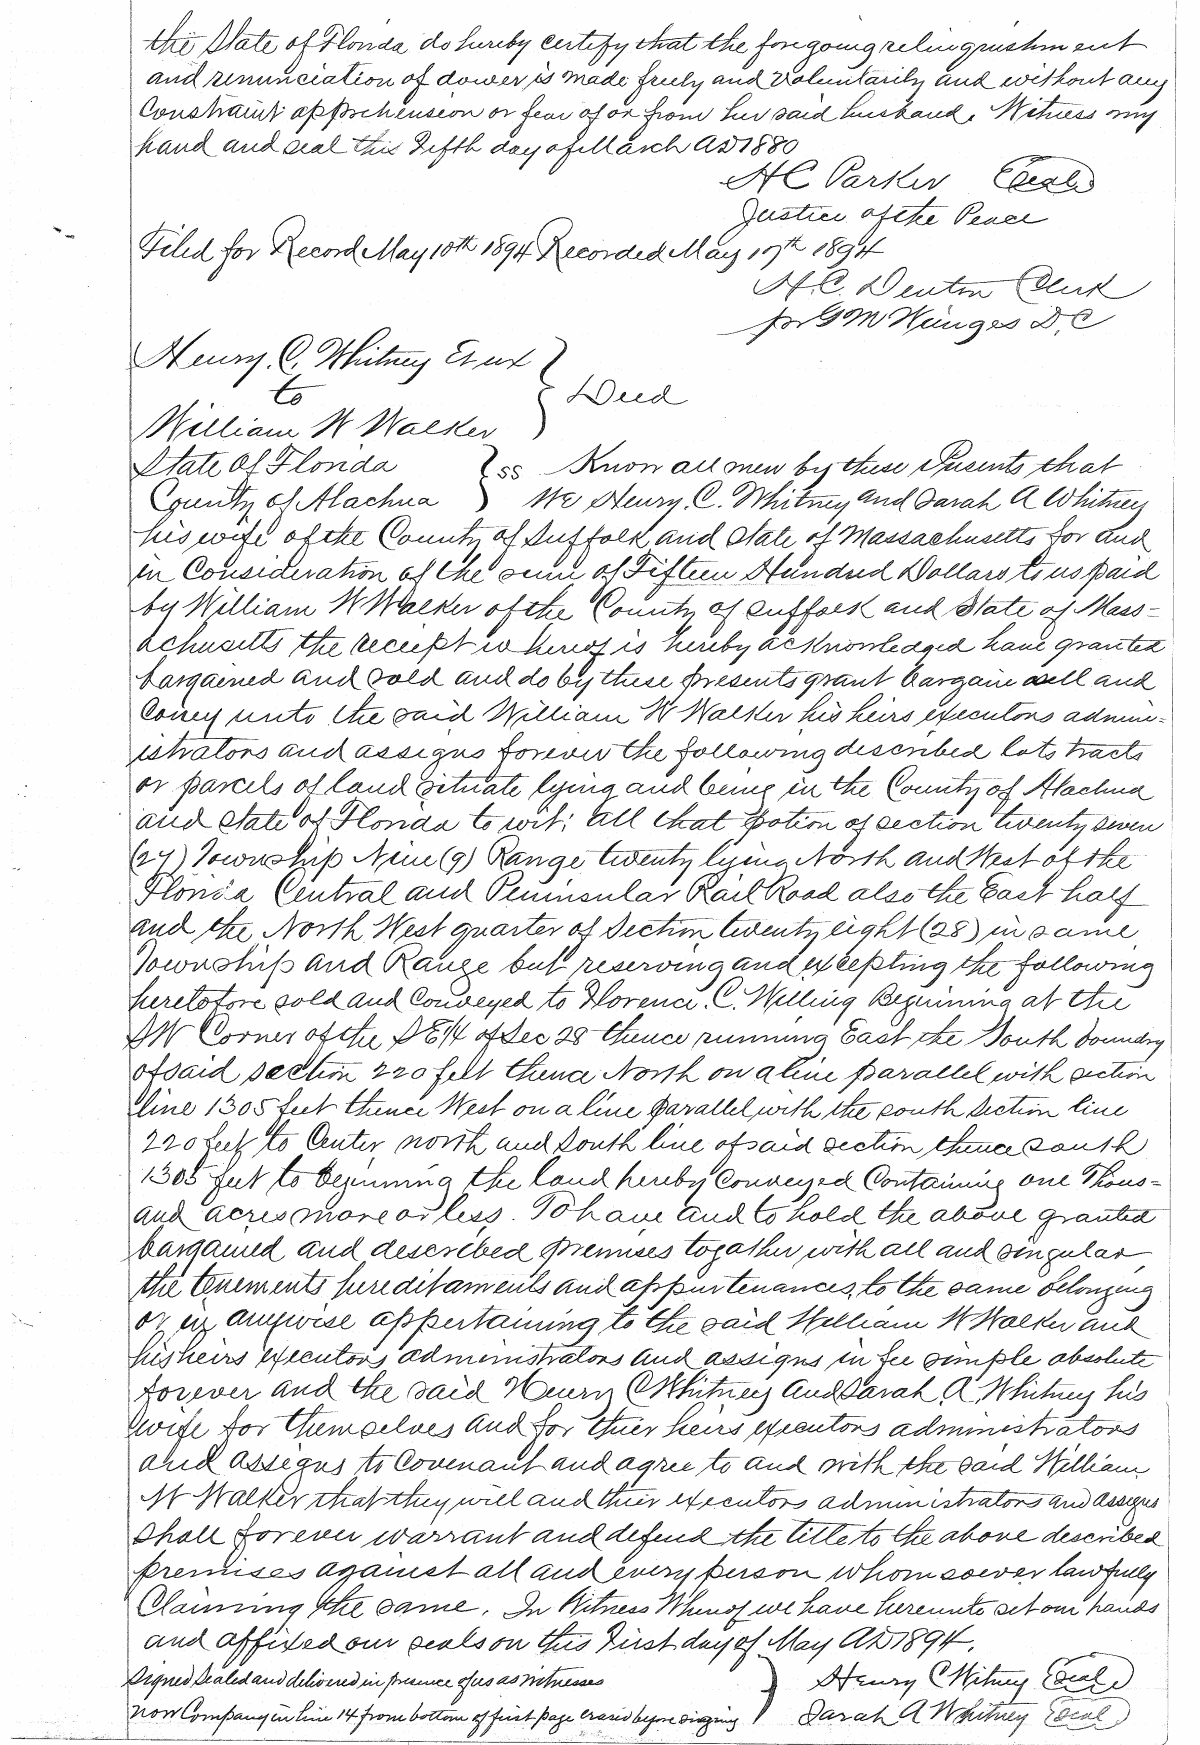 the State of Florida do hereby certify that the foregoing relinquishment
and renunciation of dower is made freely and voluntarily and without any
Constraint apprehension or fear of or from her said husband. Witness my
hand and seal this Fifth day of March AD 1880
H C Parker (Seal)
Justice of the Peace
Filed for Record May 10th 1894 Recorded May 17th 1894
H. C. Denton Clerk
pr G M D. C
Henry. C. Whitney Et ux
to
Deed
William W Walker
State of Florida } ss Know all men by these Presents that
County of Alachua } We Henry. C. Whitney and Sarah A Whitney
his wife of the County of Suffolk and State of Massachusetts for and
in Consideration of the sum of Fifteen Hundred Dollars to us paid
by William W Walker of the County of Suffolk and State of Mass-
achusetts the receipt whereof is hereby acknowledged have granted
bargained and sold and do by these presents grant bargain sell and
Convey unto the said William W Walker his heirs executors admin-
istrators and assigns forever the following described lots tracts
or parcels of land situate lying and being in the County of Alachua
and State of Florida to wit: all that potion of section twenty seven
(27) Township Nine (9) Range twenty lying North and West of the
Florida Central and Peninsular Rail Road also the East half
and the North West quarter of Section twenty eight (28) in same
Township and Range but reserving and excepting the following
heretofore sold and conveyed to Florence. C. Willing Beginning at the
SW Corner of the SE 1/4 of Sec 28 thence running East the South boundry
of said section 220 feet thence North on a line parallel with section
line 1305 feet thence West on a line parallel with the south Section line
220 feet to Center north and South line of said section thence south
1305 feet to beginning the land hereby Conveyed Containing one Thous-
and acres more or less. To have and to hold the above granted
bargained and described premises togather with all and singular
the tenements hereditaments and appurtenances, to the same belonging
or in anywise appertaining to the said William W Walker and
his heirs executors administrators and assigns in fee simple absolute
forever and the said Henry C Whitney and Sarah A. Whitney his
wife for themselves and for thier heirs executors administrators
and assigns to Covenant and agree to and with the said William
W Walker that they will and thier executors administrators and assigns
shall forever warrant and defend the title to the above described
premises against all and every person whomsoever lawfully
Claiming the same. In Witness Whereof we have hereunto set our hands
and affixed our seals on this First day of May AD 1894.
Signed Sealed and delivered in presence of us as witnesses } Henry C Witney (Seal)
now Company in line 14 from bottom of first page erased before signing } Sarah A Whitney (Seal)